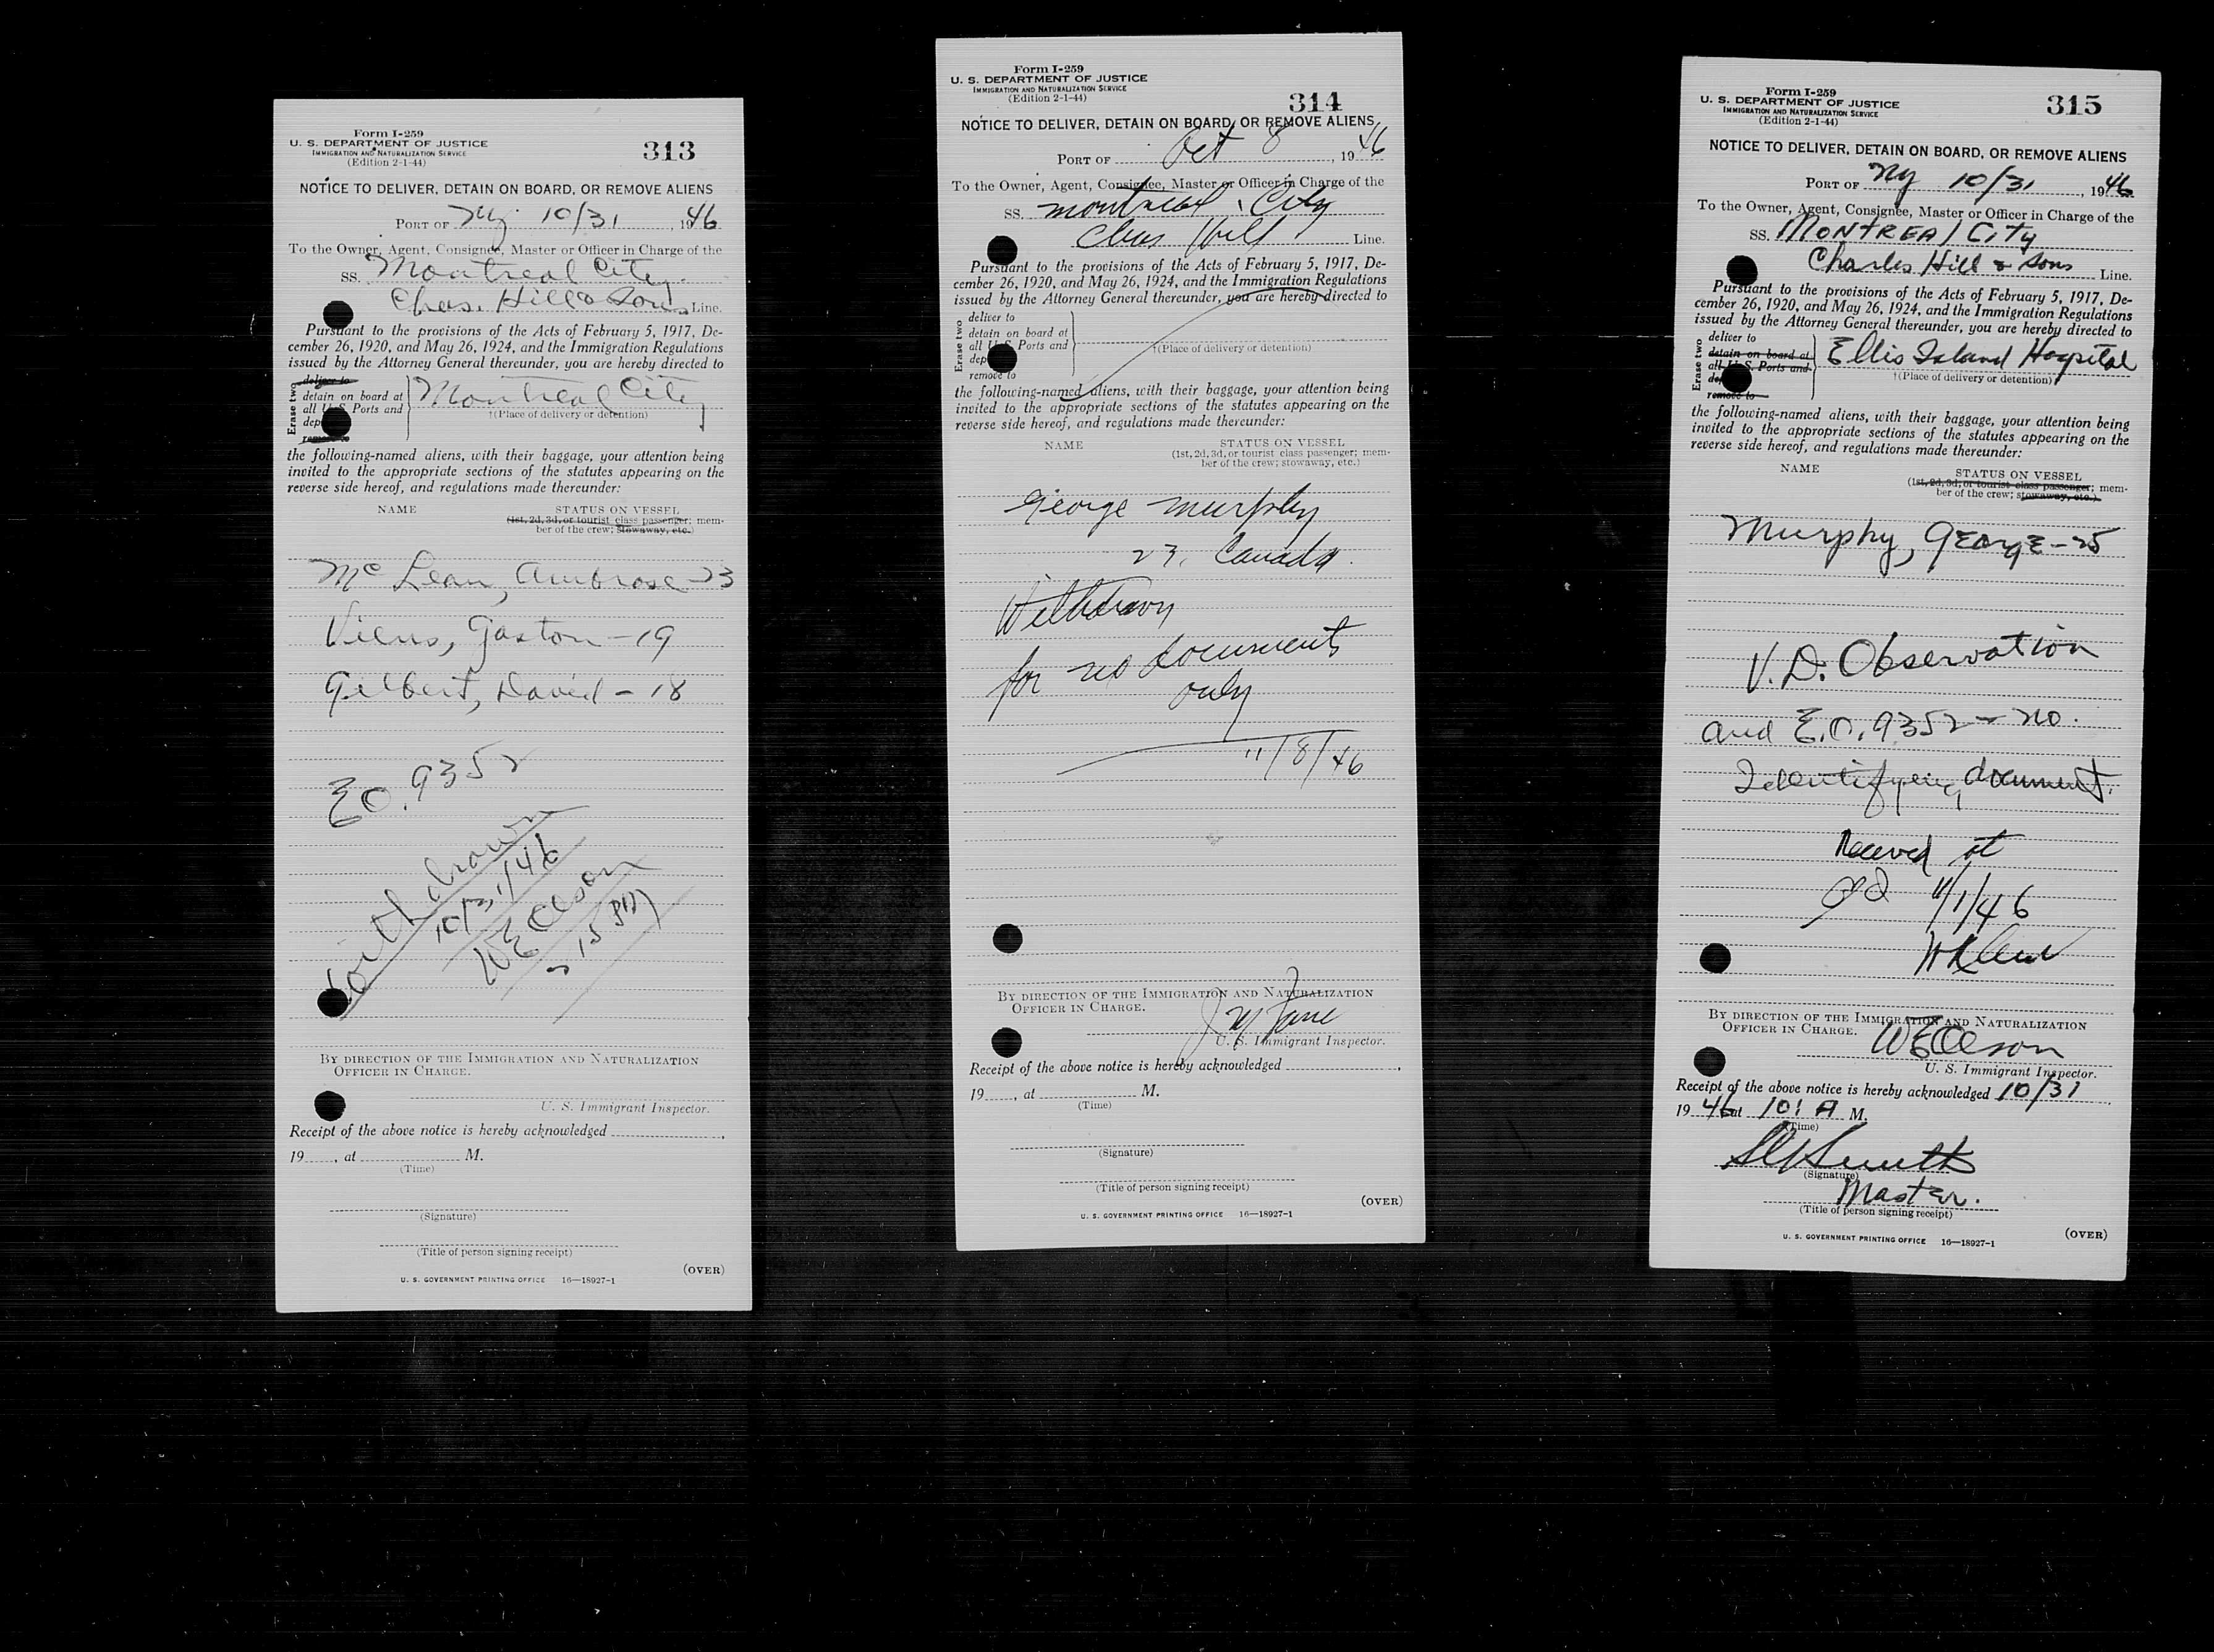 Form I-259
U. S. DEPARTMENT OF JUSTICE
IMMIGRATION AND NATURALIZATION SERVICE
(Edition 2-1-44)
313
NOTICE TO DELIVER, DETAIN ON BOARD, OR REMOVE ALIENS
PORT OF NY. 10/31, 1946
To the Owner, Agent, Consignee, Master or Officer in Charge of the
SS. Montreal City.
Chas. Hill & Sons Line.
Pursuant to the provisions of the Acts of February 5, 1917, De-
cember 26, 1920, and May 26, 1924, and the Immigration Regulations
issued by the Attorney General thereunder, you are hereby directed to
Erase two
deliver to
detain on board at
all U.S. Ports and
dep
remove to
Montreal City
†(Place of delivery or detention)
the following-named aliens, with their baggage, your attention being
invited to the appropriate sections of the statutes appearing on the
reverse side hereof, and regulations made thereunder:
NAME STATUS ON VESSEL
(1st, 2d, 3d, or tourist class passenger; mem-
ber of the crew; stowaway, etc.)
McLean, Ambrose - 23
Viens, Gaston - 19
Gilbert, David - 18
E.O. 9352
Withdrawn
10/31/46
WE Olson
5 15 PM
BY DIRECTION OF THE IMMIGRATION AND NATURALIZATION
OFFICER IN CHARGE.
U. S. Immigrant Inspector.
Receipt of the above notice is hereby acknowledged
19, at M.
(Time)
(Signature)
(Title of person signing receipt)
(OVER)
U. S. GOVERNMENT PRINTING OFFICE 16—18927-1
Form I-259
U. S. DEPARTMENT OF JUSTICE
IMMIGRATION AND NATURALIZATION SERVICE
(Edition 2-1-44)
314
NOTICE TO DELIVER, DETAIN ON BOARD, OR REMOVE ALIENS
PORT OF Oct 8, 1946
To the Owner, Agent, Consignee, Master or Officer in Charge of the
SS. Montreal City
Chas Hill Line.
Pursuant to the provisions of the Acts of February 5, 1917, De-
cember 26, 1920, and May 26, 1924, and the Immigration Regulations
issued by the Attorney General thereunder, you are hereby directed to
Erase two
deliver to
detain on board at
all U.S. Ports and
dep
remove to
†(Place of delivery or detention)
the following-named aliens, with their baggage, your attention being
invited to the appropriate sections of the statutes appearing on the
reverse side hereof, and regulations made thereunder:
NAME STATUS ON VESSEL
(1st, 2d, 3d, or tourist class passenger; mem-
ber of the crew; stowaway, etc.)
George Murphy
23. Canada.
Withdrawn
for no documents
only
11/8/46
BY DIRECTION OF THE IMMIGRATION AND NATURALIZATION
OFFICER IN CHARGE.
U. S. Immigrant Inspector.
Receipt of the above notice is hereby acknowledged
19, at M.
(Time)
(Signature)
(Title of person signing receipt)
(OVER)
U. S. GOVERNMENT PRINTING OFFICE 16—18927-1
Form I-259
U. S. DEPARTMENT OF JUSTICE
IMMIGRATION AND NATURALIZATION SERVICE
(Edition 2-1-44)
315
NOTICE TO DELIVER, DETAIN ON BOARD, OR REMOVE ALIENS
PORT OF NY 10/31, 1946
To the Owner, Agent, Consignee, Master or Officer in Charge of the
SS. MONTREAL CITY
Charles Hill & Sons Line.
Pursuant to the provisions of the Acts of February 5, 1917, De-
cember 26, 1920, and May 26, 1924, and the Immigration Regulations
issued by the Attorney General thereunder, you are hereby directed to
Erase two
deliver to
detain on board at
all U.S. Ports and
de
remove to
Ellis Island Hospital
†(Place of delivery or detention)
the following-named aliens, with their baggage, your attention being
invited to the appropriate sections of the statutes appearing on the
reverse side hereof, and regulations made thereunder:
NAME STATUS ON VESSEL
(1st, 2d, 3d, or tourist class passenger; mem-
ber of the crew; stowaway, etc.)
Murphy, George - 25
V.D. Observation
and E.O. 9352 - no.
Identifying document.
Received at
11/1/46
BY DIRECTION OF THE IMMIGRATION AND NATURALIZATION
OFFICER IN CHARGE.
WE Olson
U. S. Immigrant Inspector.
Receipt of the above notice is hereby acknowledged 10/31,
1946 at 10: A M.
(Time)
Smith
(Signature)
Master.
(Title of person signing receipt)
(OVER)
U. S. GOVERNMENT PRINTING OFFICE 16—18927-1